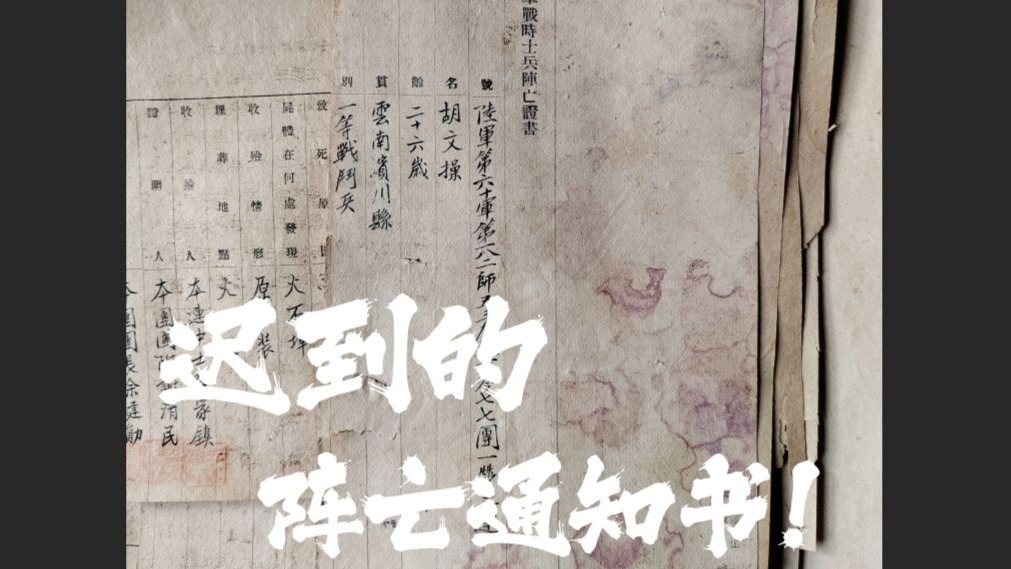 戰時士兵陣亡證書
號 陸軍第六十軍第一八二師五三
七七團一
名 胡文操
齡 二十六歲
貫 雲南賓川縣
別 一等戰鬥兵
致死原因
屍體在何處發現 火石埠
收殮情形 原裝
埋葬地點 火
收殮人 本連中士 家鎮
證明人 本團團附 清民
本團團長余建勛
迟到的
阵亡通知书!